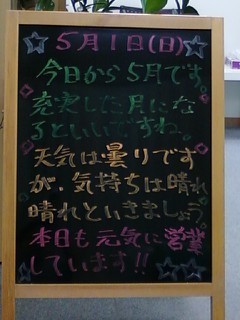 5月1日(日)
今日から5月です。
充実した月にな
るといいですね。
天気は曇りです
が、気持ちは晴れ
晴れといきましょう。
本日も元気に営業
しています!!